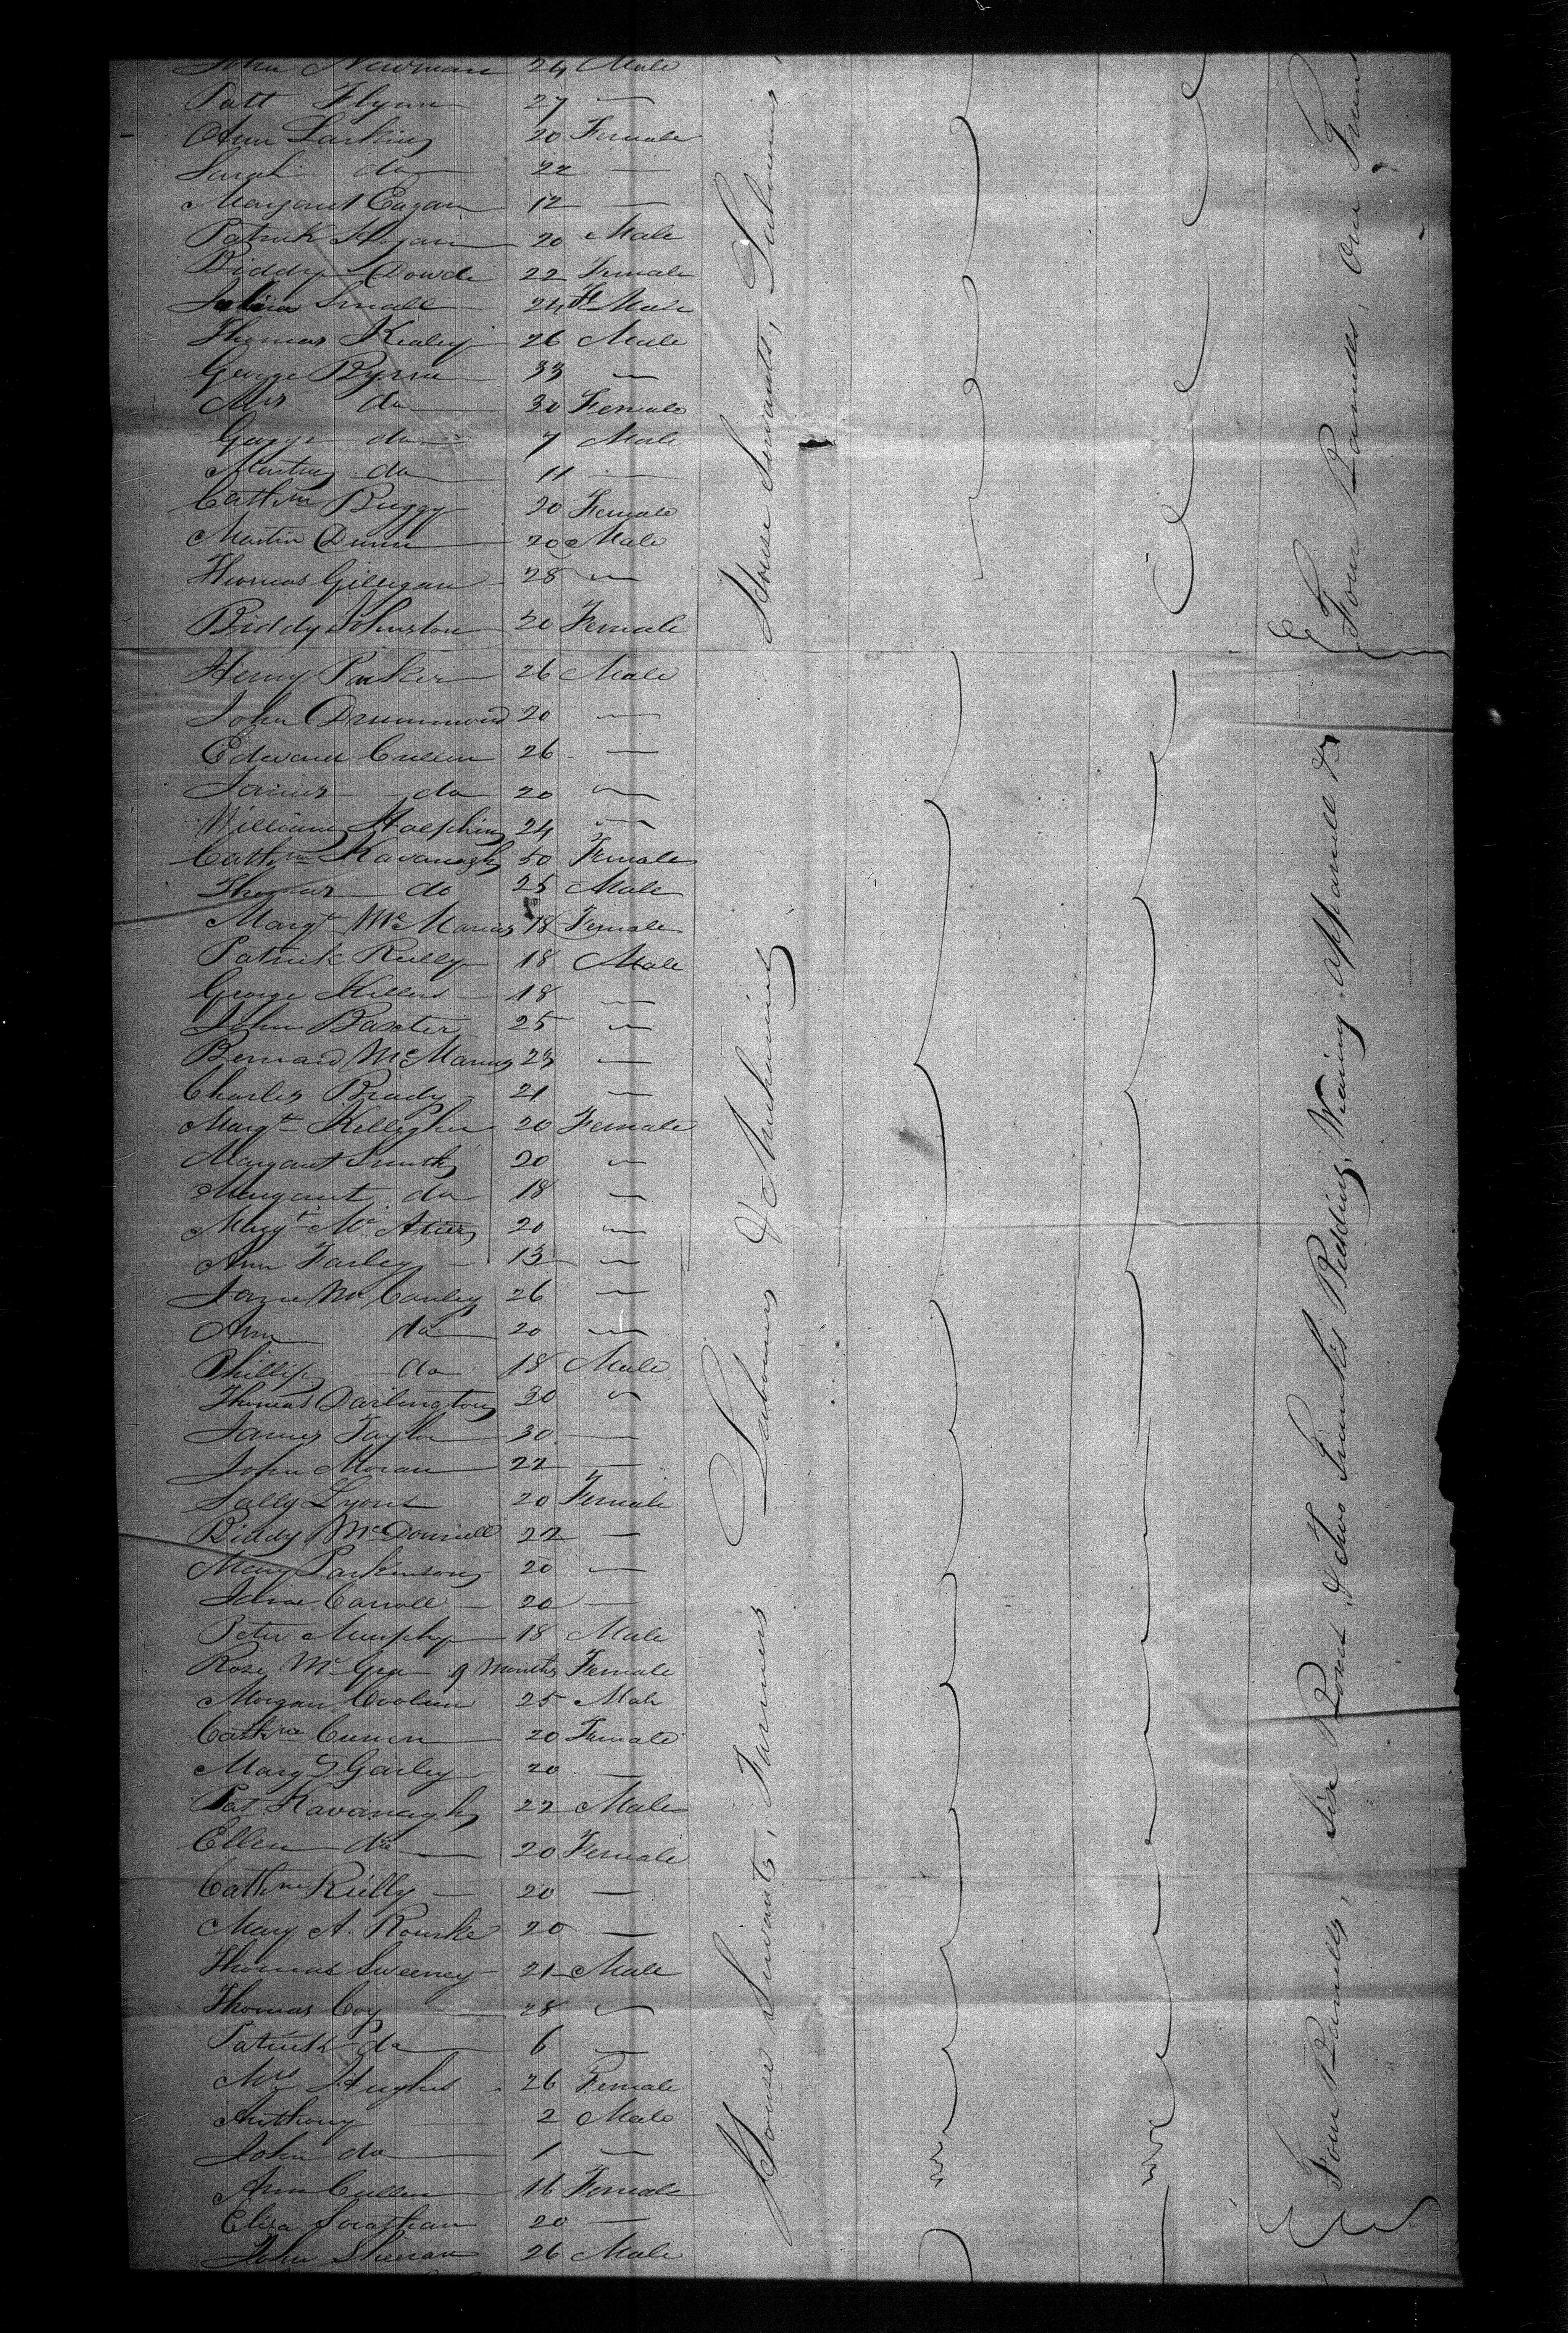 John Newman 24 Male
Patt Flynn 27 —
Ann Larkin 20 Female
Sarah do 22 —
Margaret Eagan 12 —
Patrick Hogan 20 Male
Biddy Dowd 22 Female
Small 24 Fe Male
Thomas Kealey 26 Male
George Byrne 33 —
Mrs do 30 Female
George do 7 Male
do 11 —
Cathne Buggy 20 Female
Martin Dunn 20 Male
Thomas Gilligan 28 —
Biddy Johnston 20 Female
Henry Parker 26 Male
John Drummond 20 —
Edward Cullen 26 —
James do 20 —
William Halphin 24 —
Cathne Kavanagh 50 Female
Thomas do 25 Male
Margt McManus 18 Female
Patrick Reilly 18 Male
George 18 —
John Baxter 25 —
Bernard McManus 23 —
Charles Brady 21 —
Margt Kelligher 20 Female
Margaret Smith 20 —
Margaret do 18 —
Margt Mc 20 —
Ann Farley 13 —
Jane McCauley 26 —
Ann do 20 —
Phillip do 18 Male
Thomas Darlington 30 —
James Taylor 30 —
John Moran 22 —
Sally Lyons 20 Female
Biddy McDonnell 22 —
Mary Parkinson 20 —
Carroll 20 —
Peter Murphy 18 Male
Rose Mc 9 Months Female
Morgan 25 Male
Cathne 20 Female
Mary 20 —
Pat Kavanagh 22 Male
Ellen do 20 Female
Cathne Reilly 20 —
Mary A. Rourke 20 —
Thomas Sweeney 21 Male
Thomas Coy 28 —
Patrick do 6 —
Mrs Hughes 26 Female
Anthony 2 Male
John do 1 —
Ann Cullen 16 Female
Eliza 20 —
John Sheeran 26 Male
House Servants, Farmers Labourers & Mechanics
House Servants, Labourers
Four Barrells, Six Boxes & Two Trunks Bedding, Wearing apparrell &c
Four Barrells, One Trunk